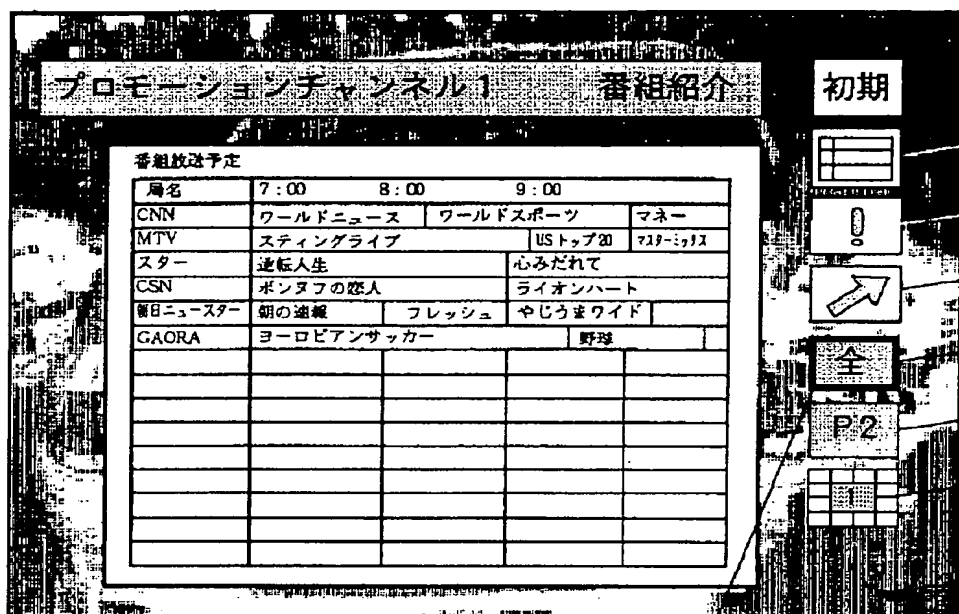 プロモーションチャンネル1 番組紹介
初期
番組放送予定
局名 7:00 8:00 9:00
CNN ワールドニュース ワールドスポーツ マネー
MTV スティングライブ USトップ20 マスターミックス
スター 逆転人生 心みだれて
CSN ポンヌフの恋人 ライオンハート
朝日ニュースター 朝の速報 フレッシュ やじうまワイド
GAORA ヨーロピアンサッカー 野球
全
P2